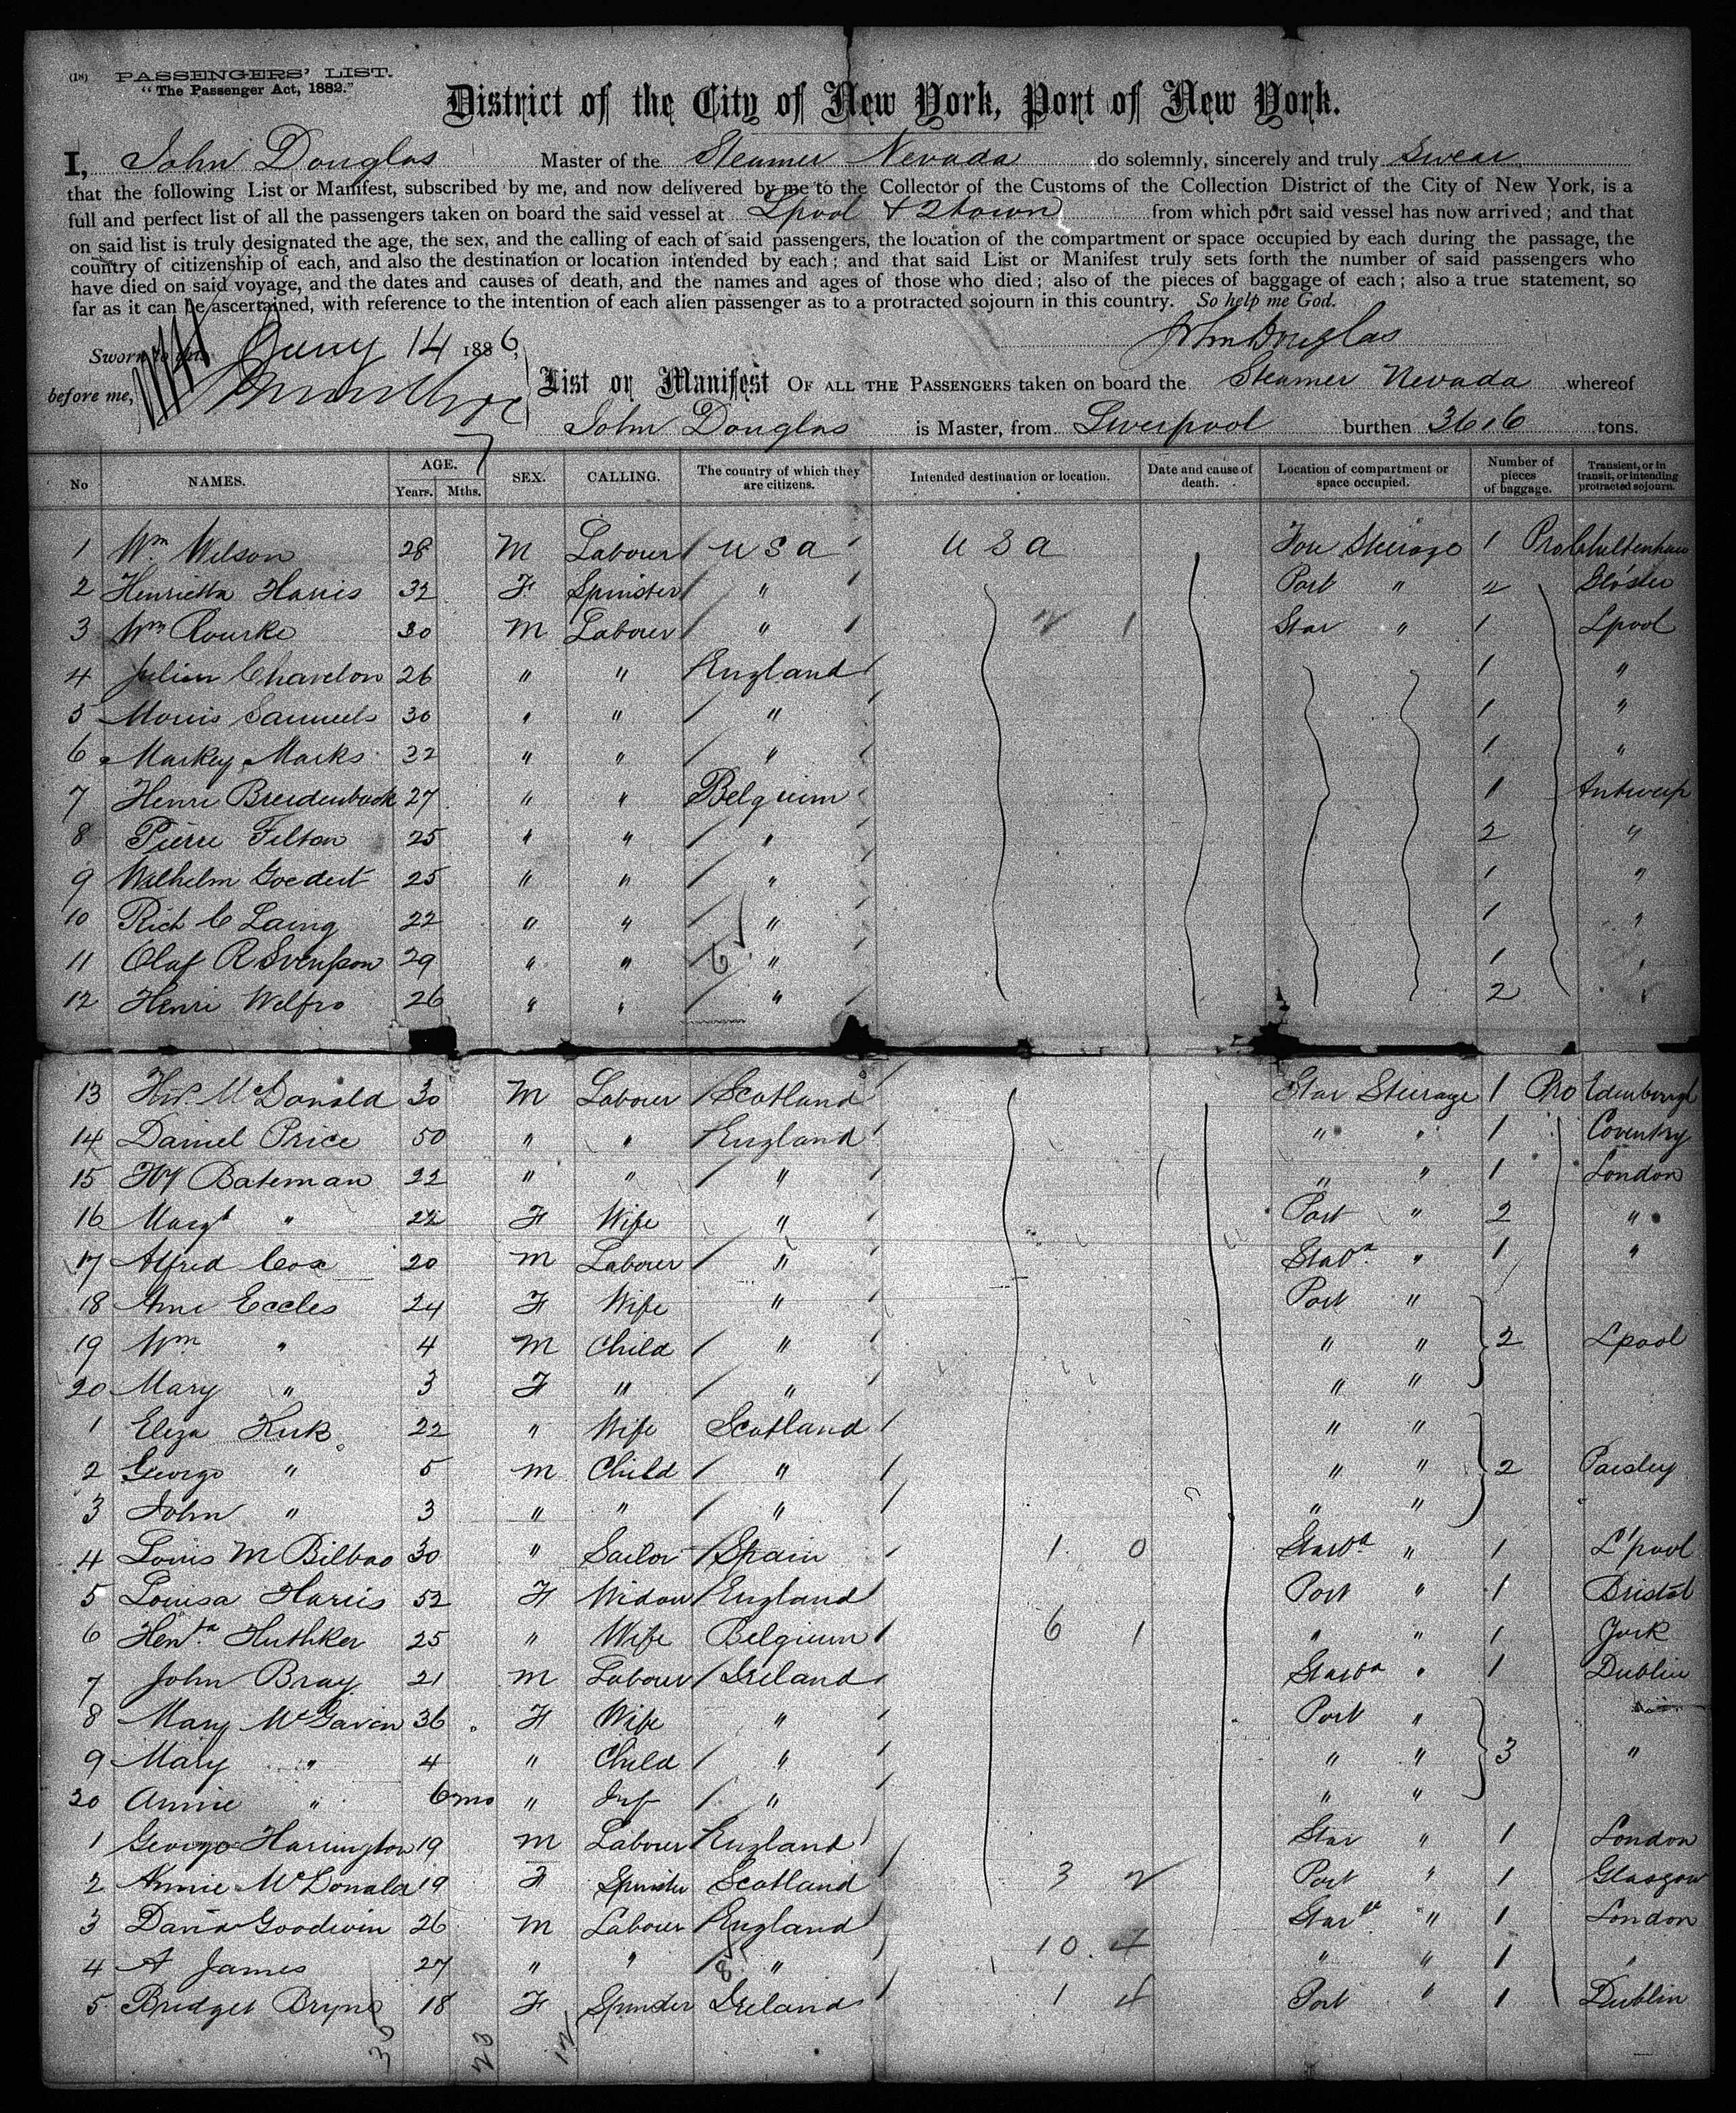 (18) PASSENGERS' LIST.
"The Passenger Act, 1882."
District of the City of New York, Port of New York.
I, John Douglas Master of the Steamer Nevada do solemnly, sincerely and truly Swear
that the following List or Manifest, subscribed by me, and now delivered by me to the Collector of the Customs of the Collection District of the City of New York, is a
full and perfect list of all the passengers taken on board the said vessel at Lpool & 2town from which port said vessel has now arrived; and that
on said list is truly designated the age, the sex, and the calling of each of said passengers, the location of the compartment or space occupied by each during the passage, the
country of citizenship of each, and also the destination or location intended by each; and that said List or Manifest truly sets forth the number of said passengers who
have died on said voyage, and the dates and causes of death, and the names and ages of those who died; also of the pieces of baggage of each; also a true statement, so
far as it can be ascertained, with reference to the intention of each alien passenger as to a protracted sojourn in this country. So help me God.
John Douglas
Sworn to this Jany 14 1886,
before me,
List or Manifest OF ALL THE PASSENGERS taken on board the Steamer Nevada whereof
John Douglas is Master, from Liverpool burthen 3616 tons.
No NAMES. AGE. Years. Mths. SEX. CALLING. The country of which they are citizens. Intended destination or location. Date and cause of death. Location of compartment or space occupied. Number of pieces of baggage. Transient, or in transit, or intending protracted sojourn.
1 Wm Wilson 28 M Labourer U S A U S A Fore Steerage 1 Pro Cheltenham
2 Henrietta Harris 32 F Spinster " Port " 2 Gloster
3 Wm Rourke 30 M Labourer " Star " 1 Lpool
4 Julien Chardon 26 " " England 1 "
5 Morris Samuels 30 " " " 1 "
6 Markey Marks 32 " " " 1 "
7 Henri Breidenback 27 " " Belgium 1 Antwerp
8 Pierre Filton 25 " " " 2 "
9 Wilhelm Goedert 25 " " " 1 "
10 Rich C Laing 22 " " " 1 "
11 Olaf R Svenson 29 " " " 1 "
12 Henri Welfro 26 " " " 2 "
13 McDonald 30 M Labourer Scotland Star Steerage 1 Pro Edenburgh
14 Daniel Price 50 " " England " " 1 Coventry
15 Hy Bateman 22 " " " " " 1 London
16 Margt " 22 F Wife " Port " 2 "
17 Alfred Cox 20 M Labourer " Stabd " 1 "
18 Ame Eccles 24 F Wife " Port "
19 Wm " 4 M Child " " " 2 Lpool
20 Mary " 3 F " " " "
1 Eliza Kirk 22 " Wife Scotland " "
2 George " 5 M Child " " " 2 Paisley
3 John " 3 " " " " "
4 Louis M Bilbao 30 " Sailor Spain 1 0 Starbd " 1 L'pool
5 Louisa Harris 52 F Widow England Port " 1 Bristol
6 Henta Huthker 25 " Wife Belgium 6 1 " " 1 York
7 John Bray 21 M Labourer Ireland Starbd " 1 Dublin
8 Mary McGavin 36 F Wife " Port "
9 Mary " 4 " Child " " " 3 "
30 Annie " 6mo " Inf " " "
1 George Harrington 19 M Labourer England Star " 1 London
2 Annie McDonald 19 F Spinster Scotland 3 2 Port " 1 Glasgow
3 Goodwin 26 M Labourer England Starbd " 1 London
4 A James 27 " " " 10 4 " " 1 "
5 Bridget Bryne 18 F Spinster Ireland 1 4 Port " 1 Dublin
23 12